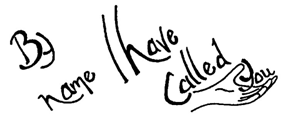 By
name I have
Called You